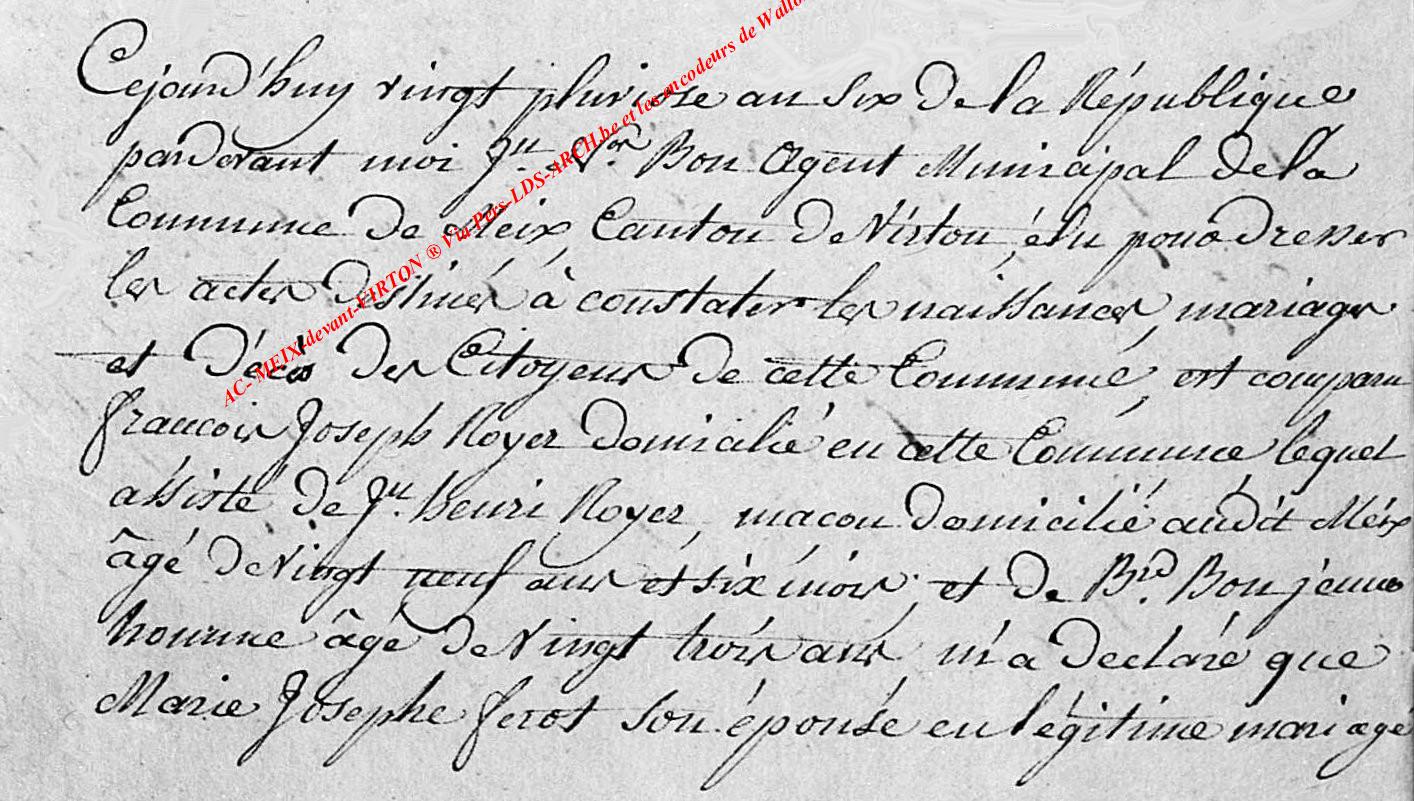 AC- MEIX-devant-VIRTON ® Via Pers-LDS-ARCH.be et les encodeurs de Wallo
Cejourd'huy vingt pluviose an Six de la République
pardevant moi Jn. Bon Agent Municipal de la
Commune de Meix, Canton de Virton, élu pour dresser
les actes destinés à constater les naissances, mariages
et décès des Citoyens de cette Commune, est comparu
francois Joseph Royer domicilié en cette Commune, lequel
assisté de Jn. henri Royer, macon domicilié audit Meix
âgé de vingt neuf ans et six mois, et de Brd. Bon jeune
homme âgé de vingt trois ans m'a déclaré que
Marie Josephe ferot son épouse en légitime mariage